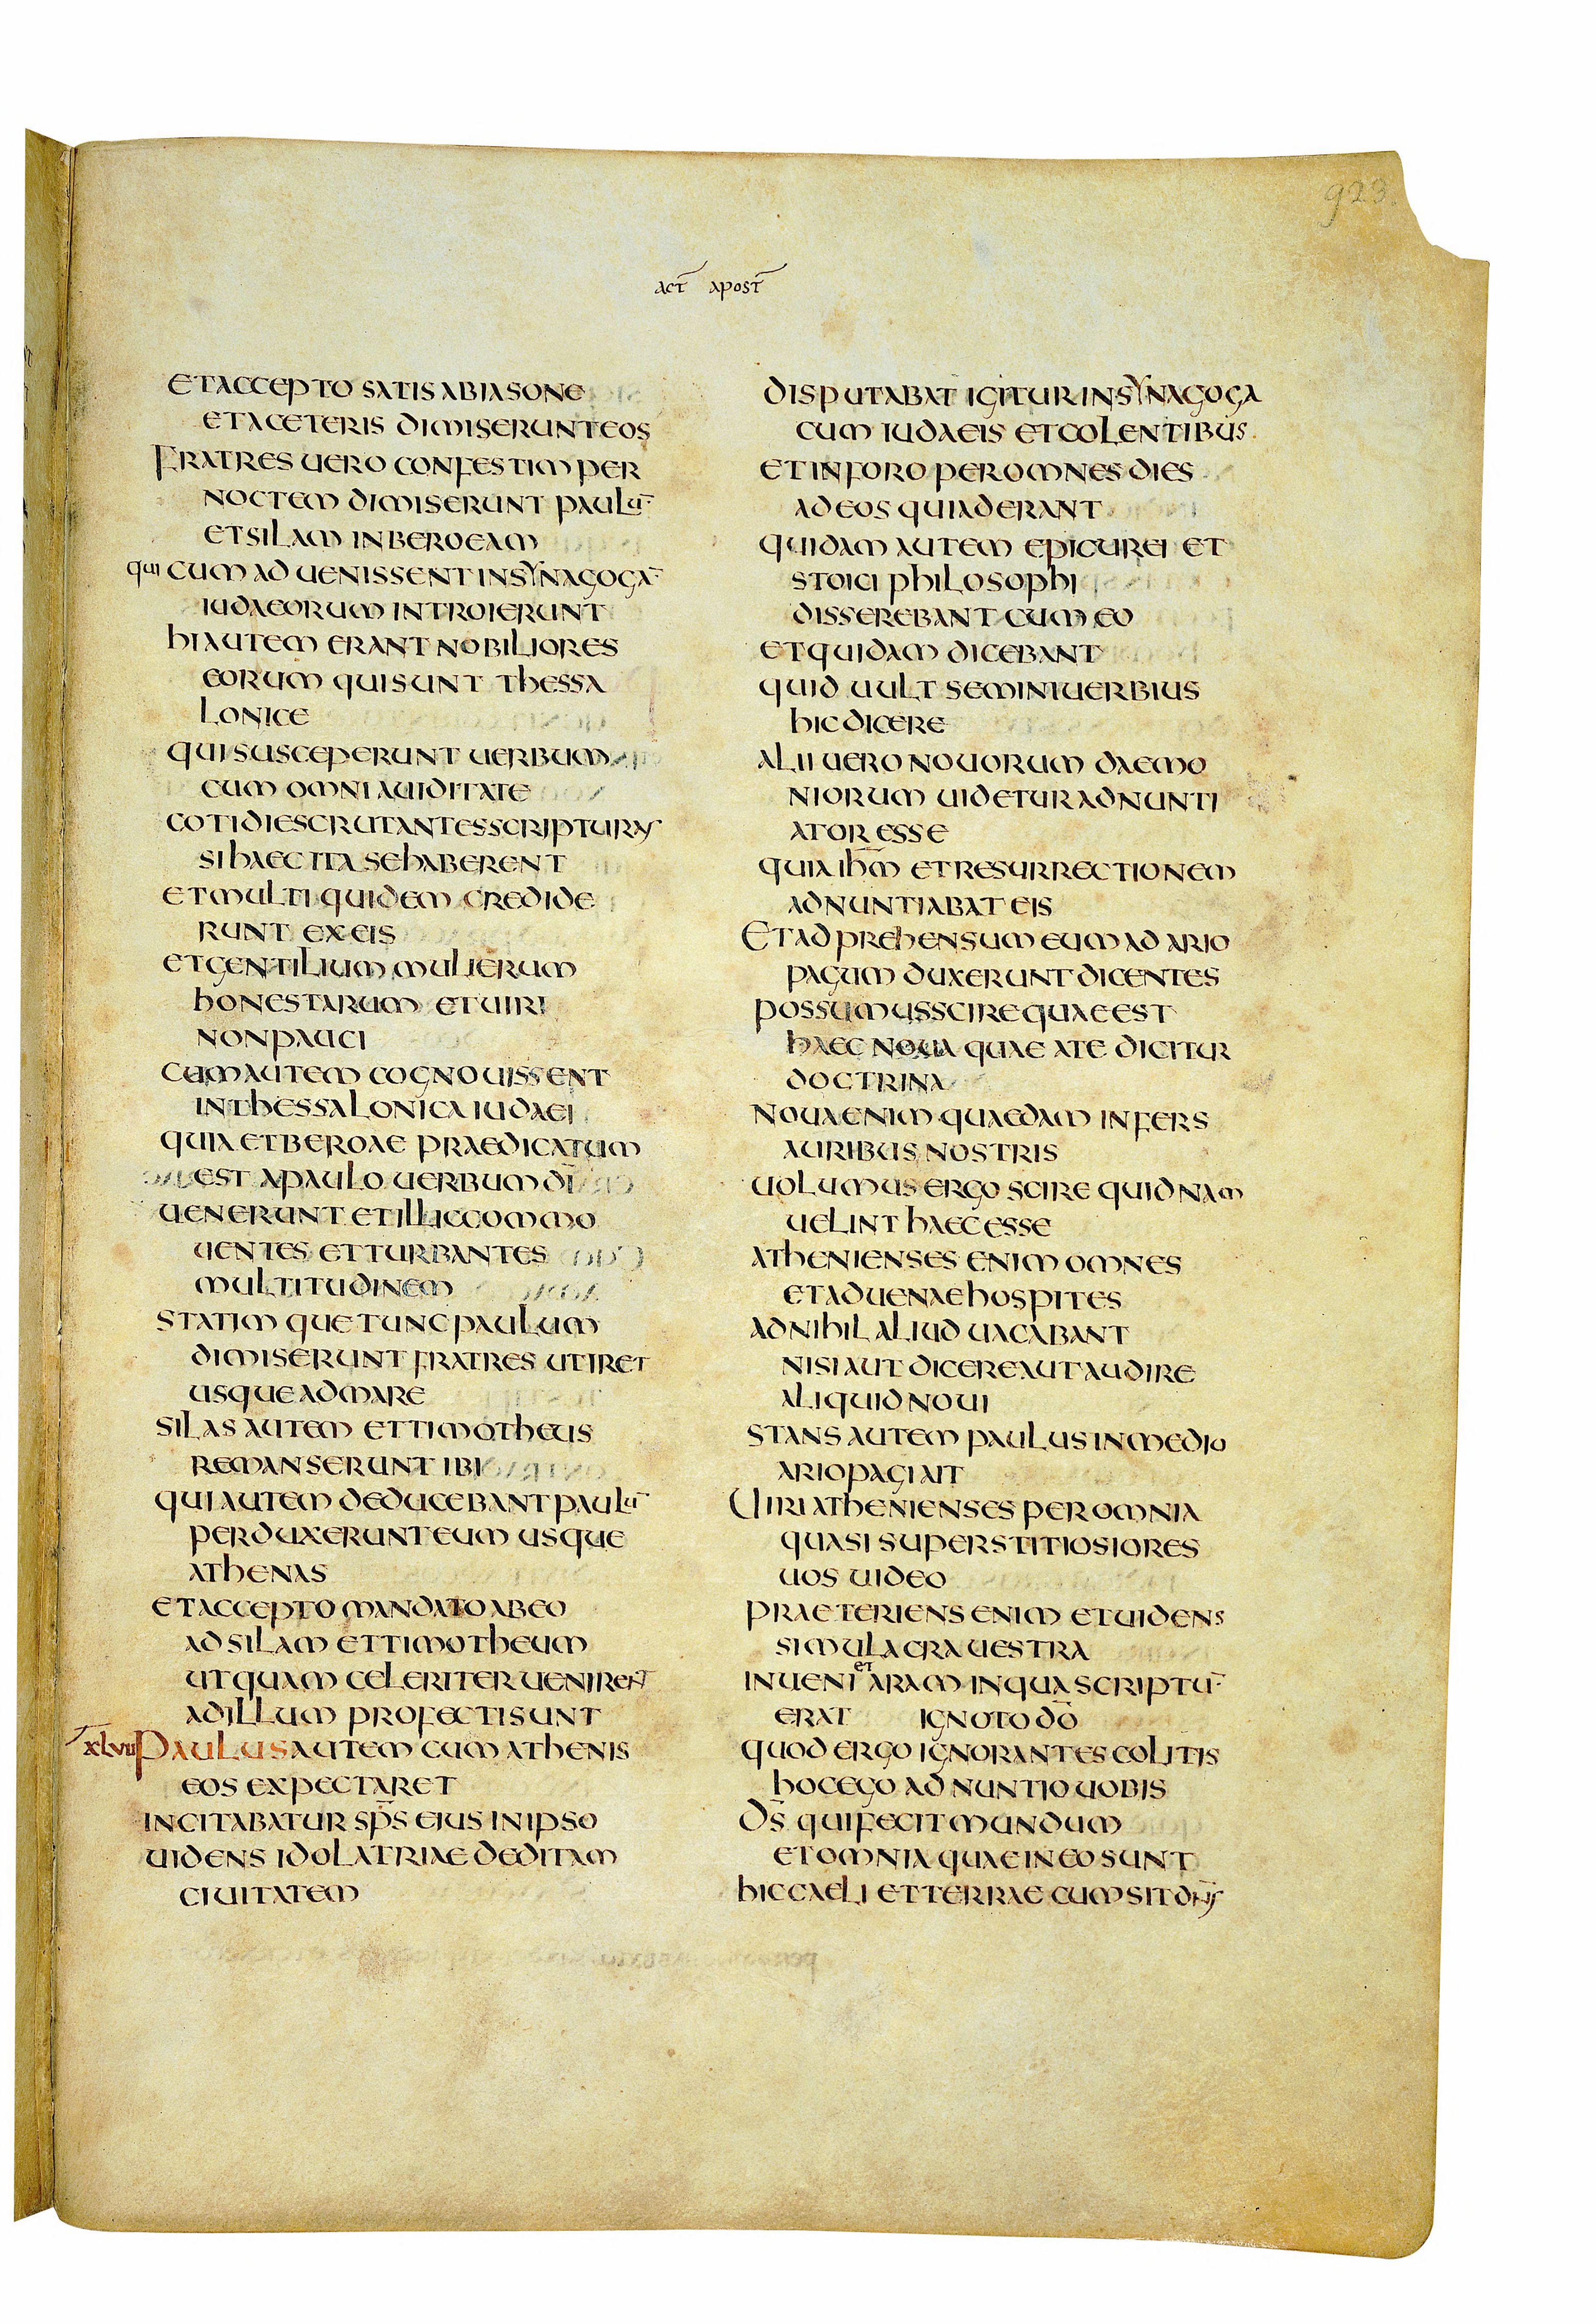 923.
act̅ apost̅
ETACCEPTO SATIS ABIASONE
ETACETERIS DIMISERUNTEOS
FRATRES UERO CONFESTIM PER
NOCTEM DIMISERUNT PAULU̅
ETSILAM INBEROEAM
qui CUMADUENISSENTINSYNAGOGA̅
IUDAEORUM INTROIERUNT
HIAUTEM ERANT NOBILIORES
EORUM QUISUNT THESSA
LONICE
QUISUSCEPERUNT UERBUM
CUM OMNIAUIDITATE
COTIDIESCRUTANTESSCRIPTURAS
SIHAEC ITA SEHABERENT
ETMULTI QUIDEM CREDIDE
RUNT EXEIS
ETGENTILIUM MULIERUM
HONESTARUM ETUIRI
NONPAUCI
CUMAUTEM COGNOUISSENT
INTHESSALONICA IUDAEI
QUIAETBEROAE PRAEDICATUM
EST APAULO UERBUM DI̅
UENERUNT ETILLICCOMMO
UENTES ETTURBANTES
MULTITUDINEM
STATIM QUETUNCPAULUM
DIMISERUNT FRATRES UTIRET
USQUEADMARE
SILAS AUTEM ETTIMOTHEUS
REMANSERUNT IBI
QUIAUTEM DEDUCEBANTPAULU̅
PERDUXERUNTEUM USQUE
ATHENAS
ETACCEPTO MANDATOABEO
ADSILAM ETTIMOTHEUM
UTQUAM CELERITER UENIRENT
ADILLUM PROFECTISUNT
XLVII PAULUSAUTEM CUMATHENIS
EOS EXPECTARET
INCITABATUR SP̅S EIUS INIPSO
UIDENS IDOLATRIAE DEDITAM
CIUITATEM
DISPUTABAT IGITURINSYNAGOGA
CUM IUDAEIS ETCOLENTIBUS
ETINFORO PEROMNES DIES
ADEOS QUIADERANT
QUIDAM AUTEM EPICUREI ET
STOICI PHILOSOPHI
DISSEREBANT CUMEO
ETQUIDAM DICEBANT
QUID UULT SEMINIUERBIUS
HICDICERE
ALII UERO NOUORUM DAEMO
NIORUM UIDETURADNUNTI
ATOR ESSE
QUIA IH̅M ETRESURRECTIONEM
ADNUNTIABAT EIS
ETADPREHENSUM EUMAD ARIO
PAGUM DUXERUNTDICENTES
POSSUMUSSCIREQUAEEST
HAEC NOUA QUAE ATE DICITUR
DOCTRINA
NOUAENIM QUAEDAM INFERS
AURIBUS NOSTRIS
UOLUMUS ERGO SCIRE QUIDNAM
UELINT HAECESSE
ATHENIENSES ENIM OMNES
ETADUENAEHOSPITES
ADNIHIL ALIUD UACABANT
NISIAUT DICEREAUTAUDIRE
ALIQUIDNOUI
STANS AUTEM PAULUSINMEDIO
ARIOPAGIAIT
UIRIATHENIENSES PEROMNIA
QUASI SUPERSTITIOSIORES
UOS UIDEO
PRAETERIENS ENIM ETUIDENS
SIMULACRA UESTRA
INUENI et ARAM INQUASCRIPTU̅
ERAT IGNOTO DO̅
QUOD ERGO IGNORANTES COLITIS
HOCEGO ADNUNTIOUOBIS
DS̅ QUIFECITMUNDUM
ETOMNIA QUAEINEOSUNT
HICCAELI ETTERRAE CUMSITDN̅S